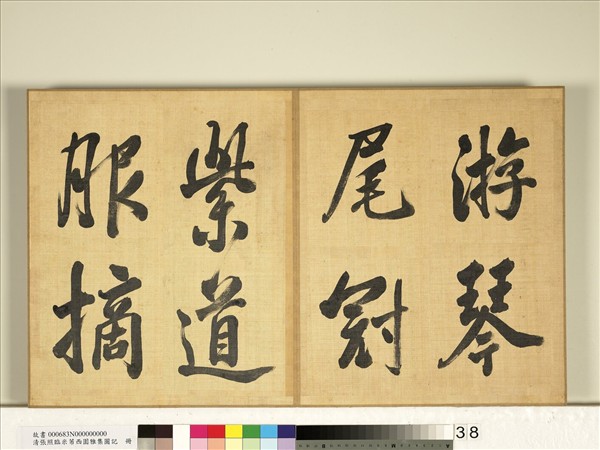 游琴
尾冠
紫道
服摘
故書 000683N000000000
清張照臨米芾西園雅集圖記 冊
38